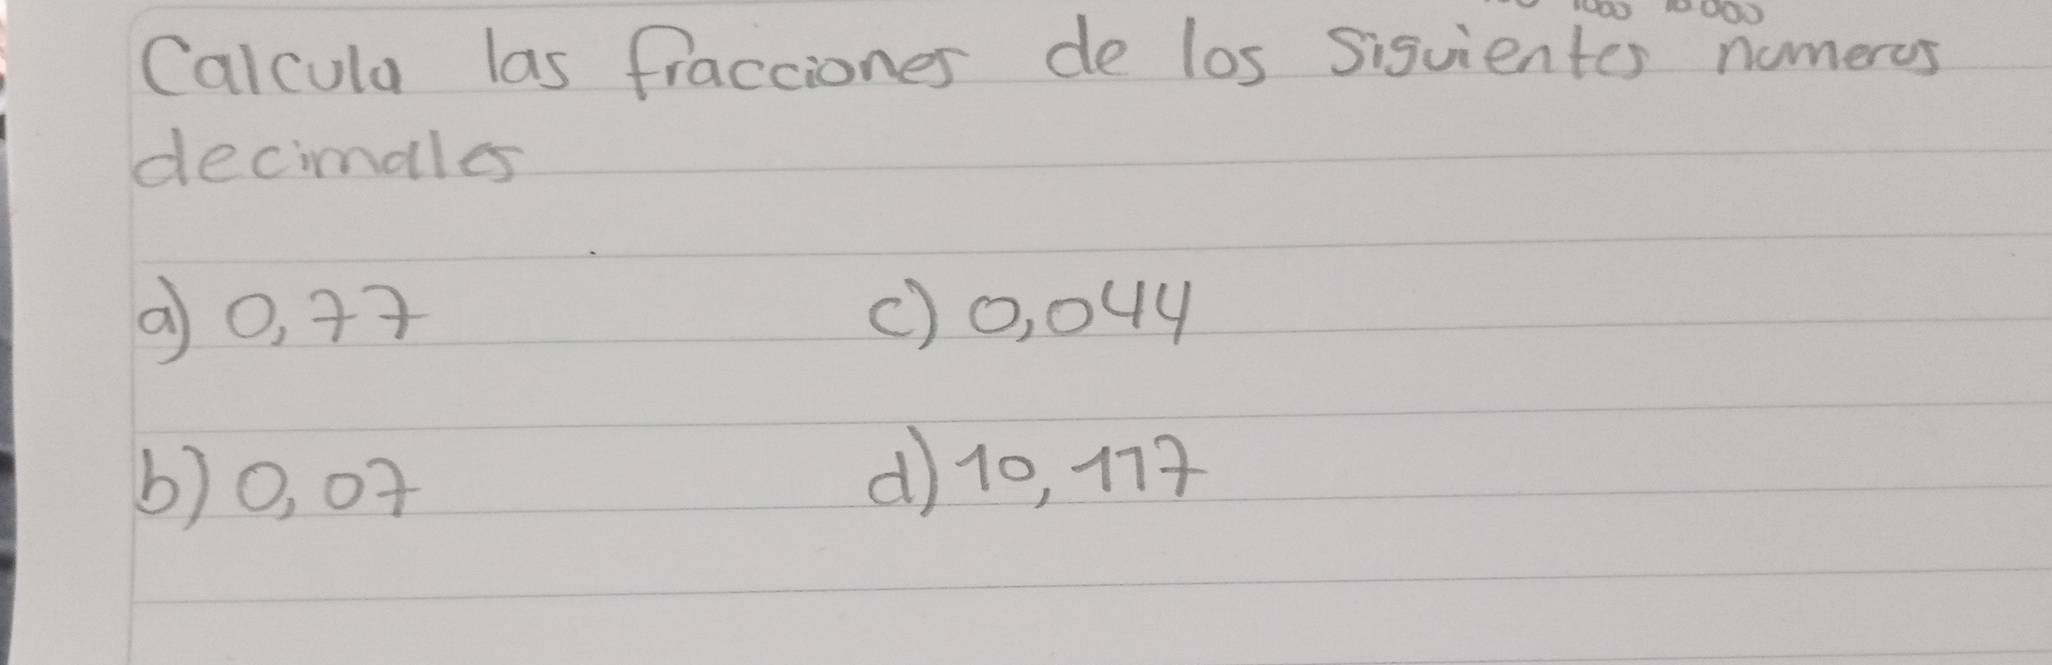 1000 10000
Calcula las fracciones de los siguientes numeros
decimales
a) 0,77 c) 0,044
b) 0,07 d) 10,117